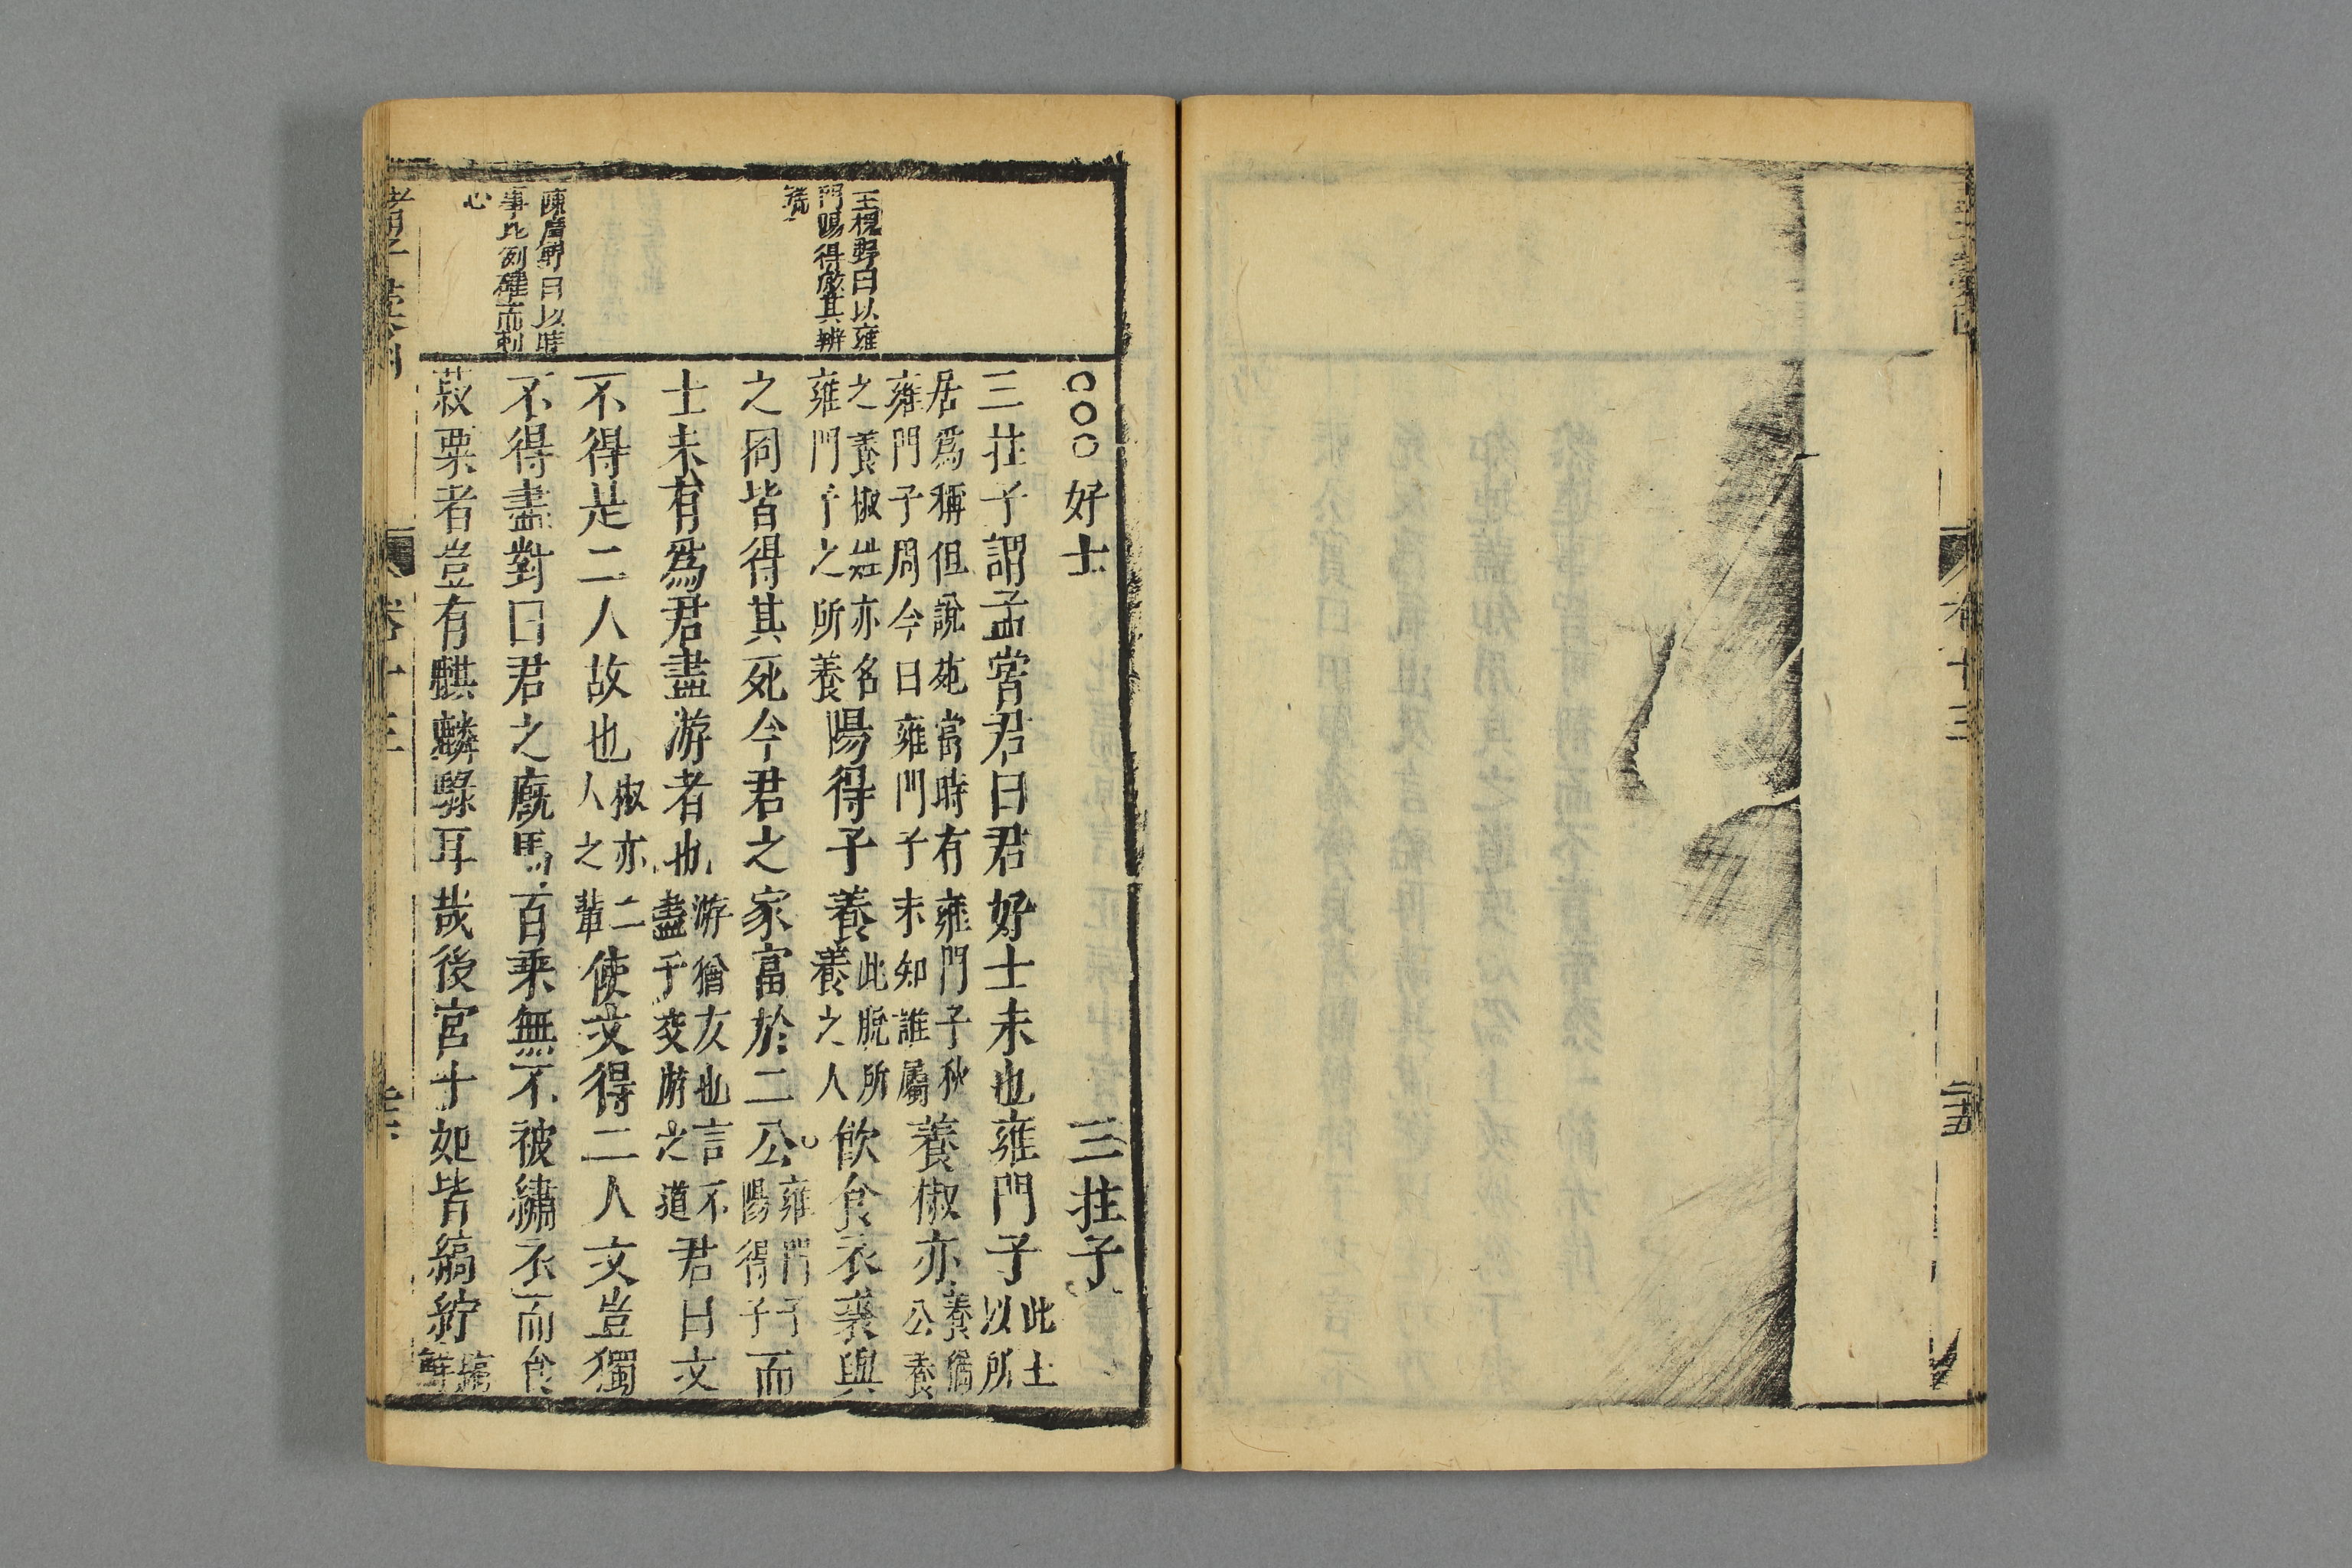 卷十三
三十五
○○○好士 三拄子
三拄子謂孟嘗君曰君好士未也雍門子此士以所
居爲稱但說苑當時有雍門子秋養椒亦養猶
雍門子周今日雍門子未知誰屬公養
之養椒姓亦名陽得子養此脫所飲食衣裘與
雍門子之所養養之人
之同皆得其死今君之家富於二公雍門子陽得子而
士未有爲君盡游者也游猶友也言不盡于交游之道君曰文
不得是二人故也椒亦二人之輩使文得二人文豈獨
不得盡對曰君之廐馬百乘無不被繡衣而食
菽粟者豈有麒麟騄耳哉後宮十妃皆縞紵縞鮮
王槐野曰以雍
門陽得啟其辨
陳廣野曰以時
事比例確而刺
心
卷十三